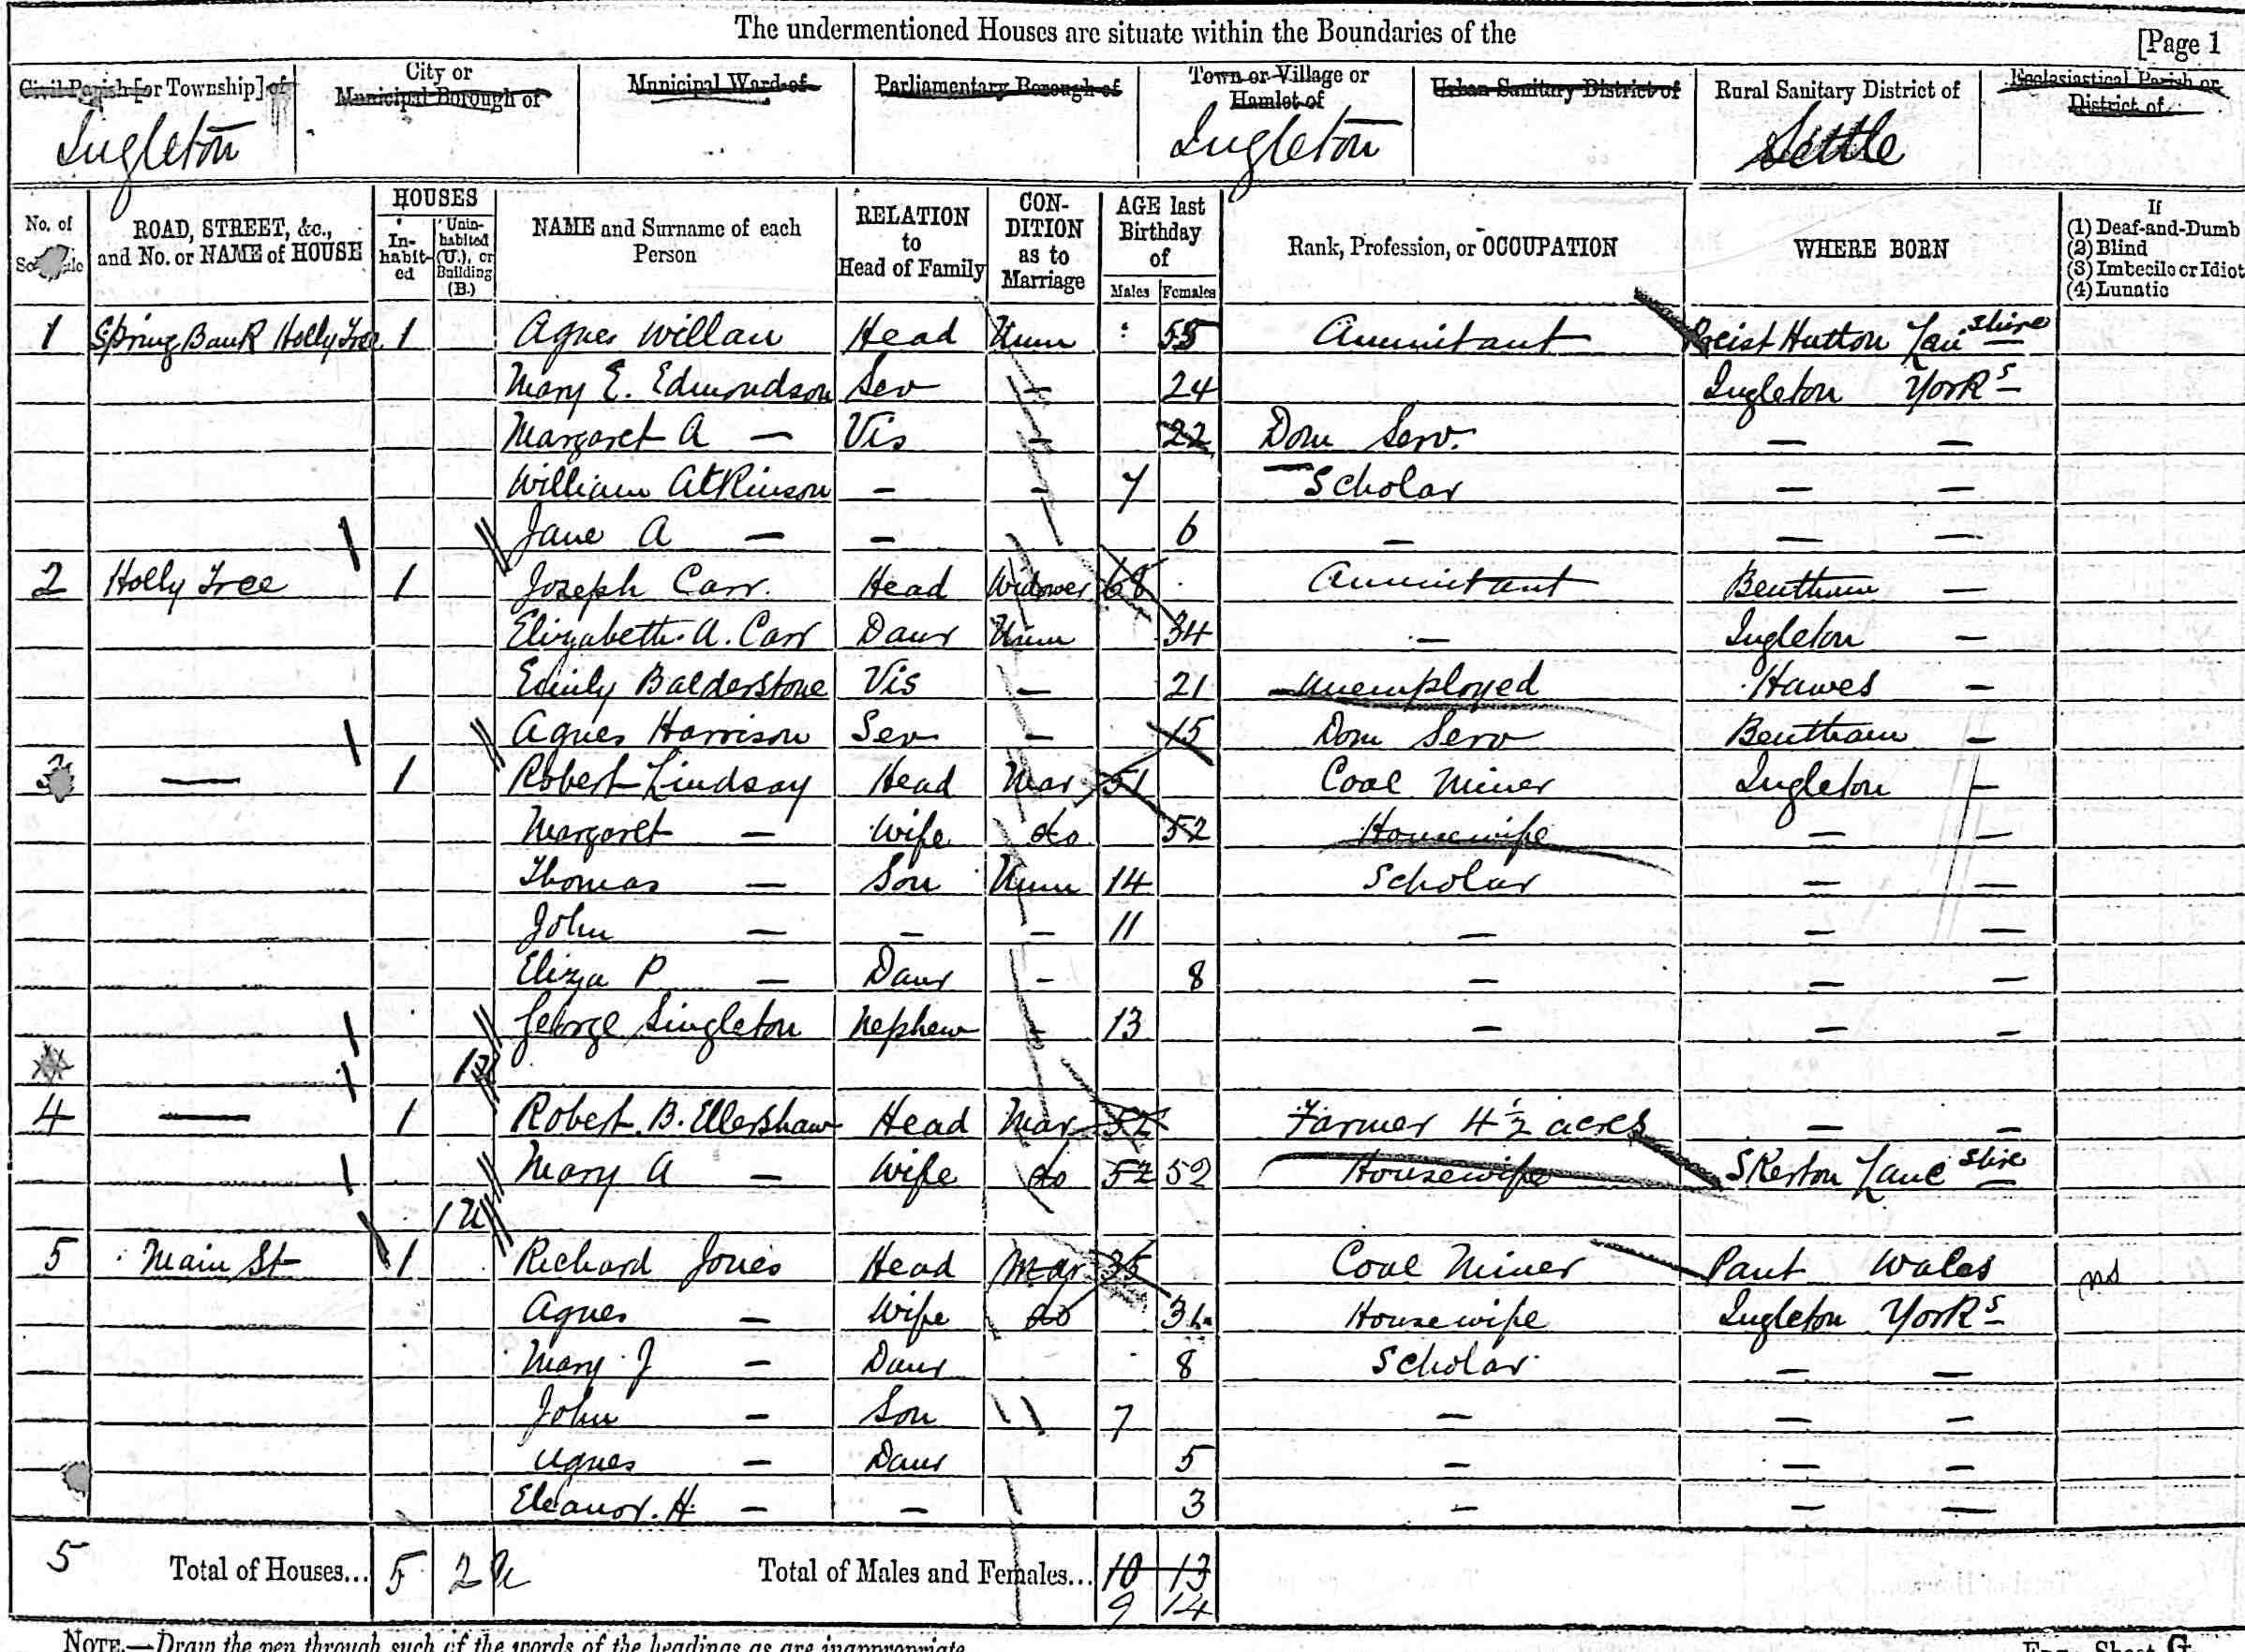 The undermentioned Houses are situate within the Boundaries of the
[Page 1
Civil Parish [or Township] of
City or Municipal Borough of
Municipal Ward of
Parliamentary Borough of
Town or Village or Hamlet of
Urban Sanitary District of
Rural Sanitary District of
Ecclesiastical Parish or District of
Ingleton Ingleton Settle
No. of Schedule
ROAD, STREET, &c., and No. or NAME of HOUSE
HOUSES
In-habit-ed
Unin-habited (U.), or Building (B.)
NAME and Surname of each Person
RELATION to Head of Family
CON-DITION as to Marriage
AGE last Birthday of
Males Females
Rank, Profession, or OCCUPATION
WHERE BORN
If
(1) Deaf-and-Dumb
(2) Blind
(3) Imbecile or Idiot
(4) Lunatic
1 Spring Bank Holly Tree 1 Agnes Willan Head Unm 55 Annuitant Hutton Lanshire
Mary E. Edmondson Serv — 24 Ingleton Yorks
Margaret A — Vis — 22 Dom Serv. — —
William Atkinson — — 7 Scholar — —
Jane A — — 6 — — —
2 Holly Tree 1 Joseph Carr. Head Widower 68 Annuitant Bentham —
Elizabeth. A. Carr Daur Unm 34 — Ingleton —
Emily Balderstone Vis — 21 Unemployed Hawes —
Agnes Harrison Serv — 15 Dom Serv Bentham —
3 — 1 Robert Lindsay Head Mar 51 Coal Miner Ingleton —
Margaret — Wife do 52 Housewife — —
Thomas — Son Unm 14 Scholar — —
John — — — 11 — — —
Eliza P — Daur — 8 — — —
George Singleton Nephew — 13 — — —
4 — 1 Robert. B. Ellershaw Head Mar 52 Farmer 4½ acres — —
Mary A — Wife do 52 52 Housewife Skerton Laneshire
1 U
5 Main St 1 Richard Jones Head Mar 35 Coal Miner Pant Wales
Agnes — Wife do Housewife Ingleton Yorks
Mary J — Daur 8 Scholar — —
John — Son 7 — — —
Agnes — Daur 5 — — —
Eleanor. H. — — 3 — — —
5 Total of Houses... 5 2 u Total of Males and Females... 10 13
9 14
NOTE.—Draw the pen through such of the words of the headings as are inappropriate.
Eng.—Sheet G.